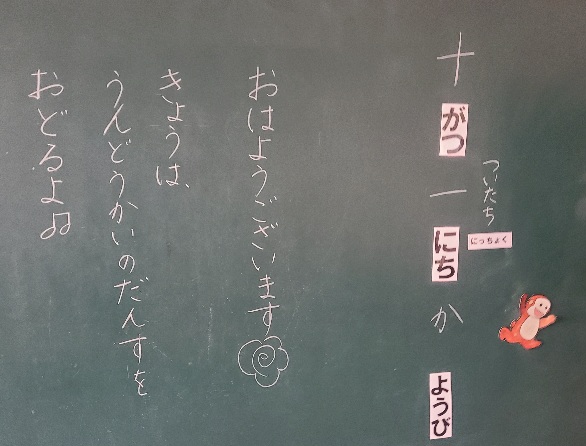 十がつ一にちかようび
ついたち
にっちょく
おはようございます
きょうは、
うんどうかいのだんすを
おどるよ♫